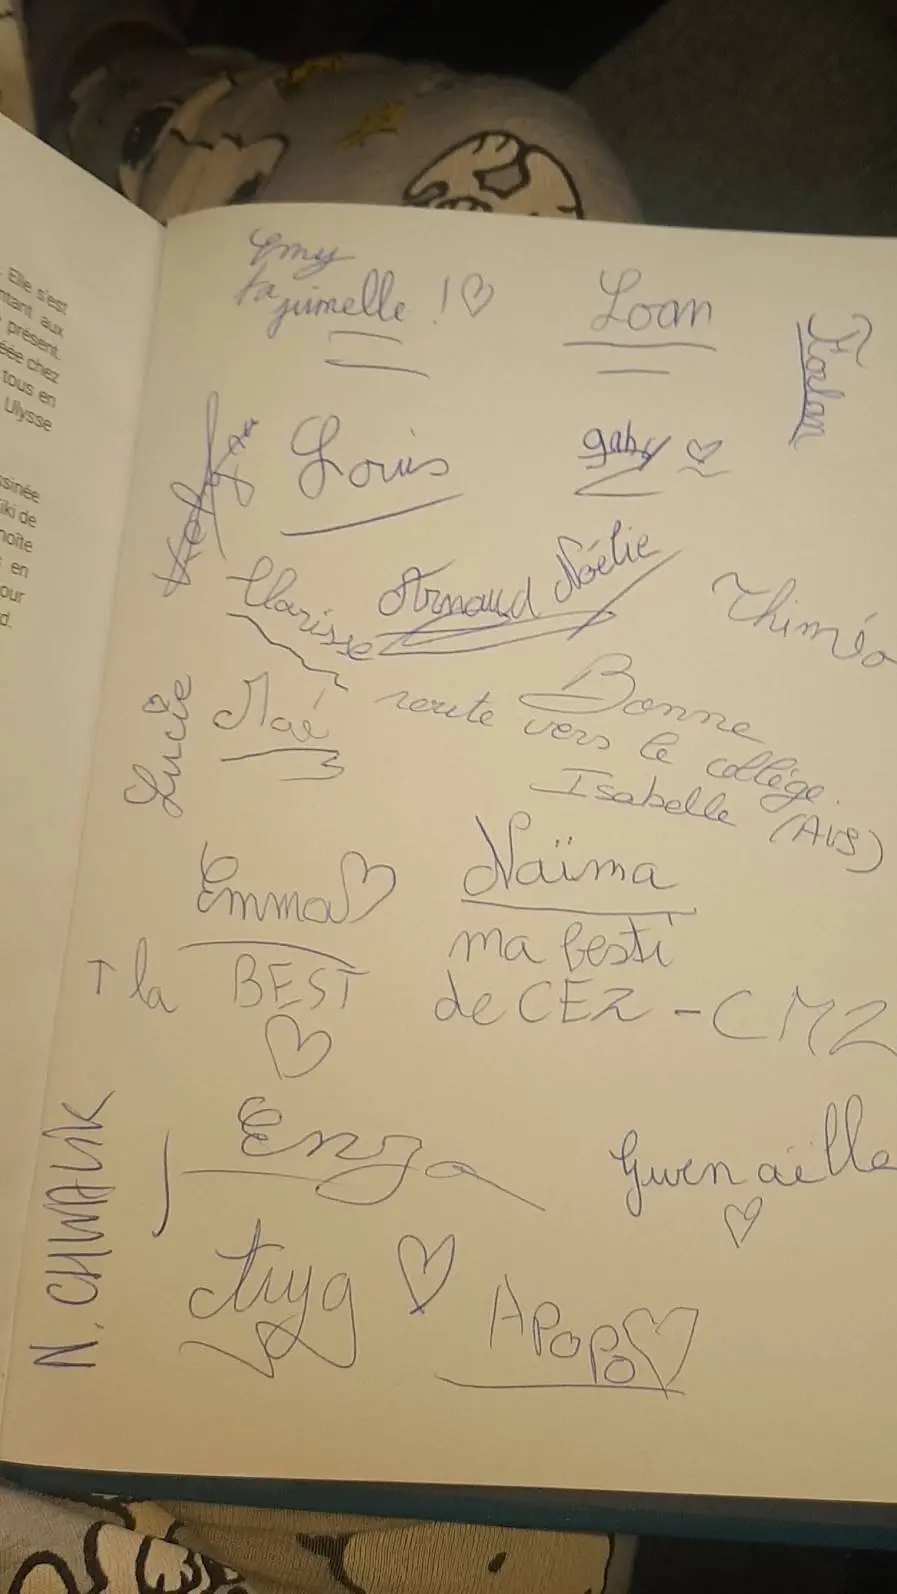 . Elle s'est
ntant aux
présent.
éée chez
tous en
Ulysse
ssinée
iki de
noîte
en
our
d.
Emy
ta jumelle !♡
Loan
Louis
gaby ♡
Clarisse
Arnaud Noélie
Thiméo
Lucie
Maé
Bonne
route vers le collège.
Isabelle (AVS)
Emma♡
T la BEST
♡
Naïma
ma besti
de CE2 - CM2
N. CHWALIK
Enza
Gwenaëlle
♡
♡
APOPO♡